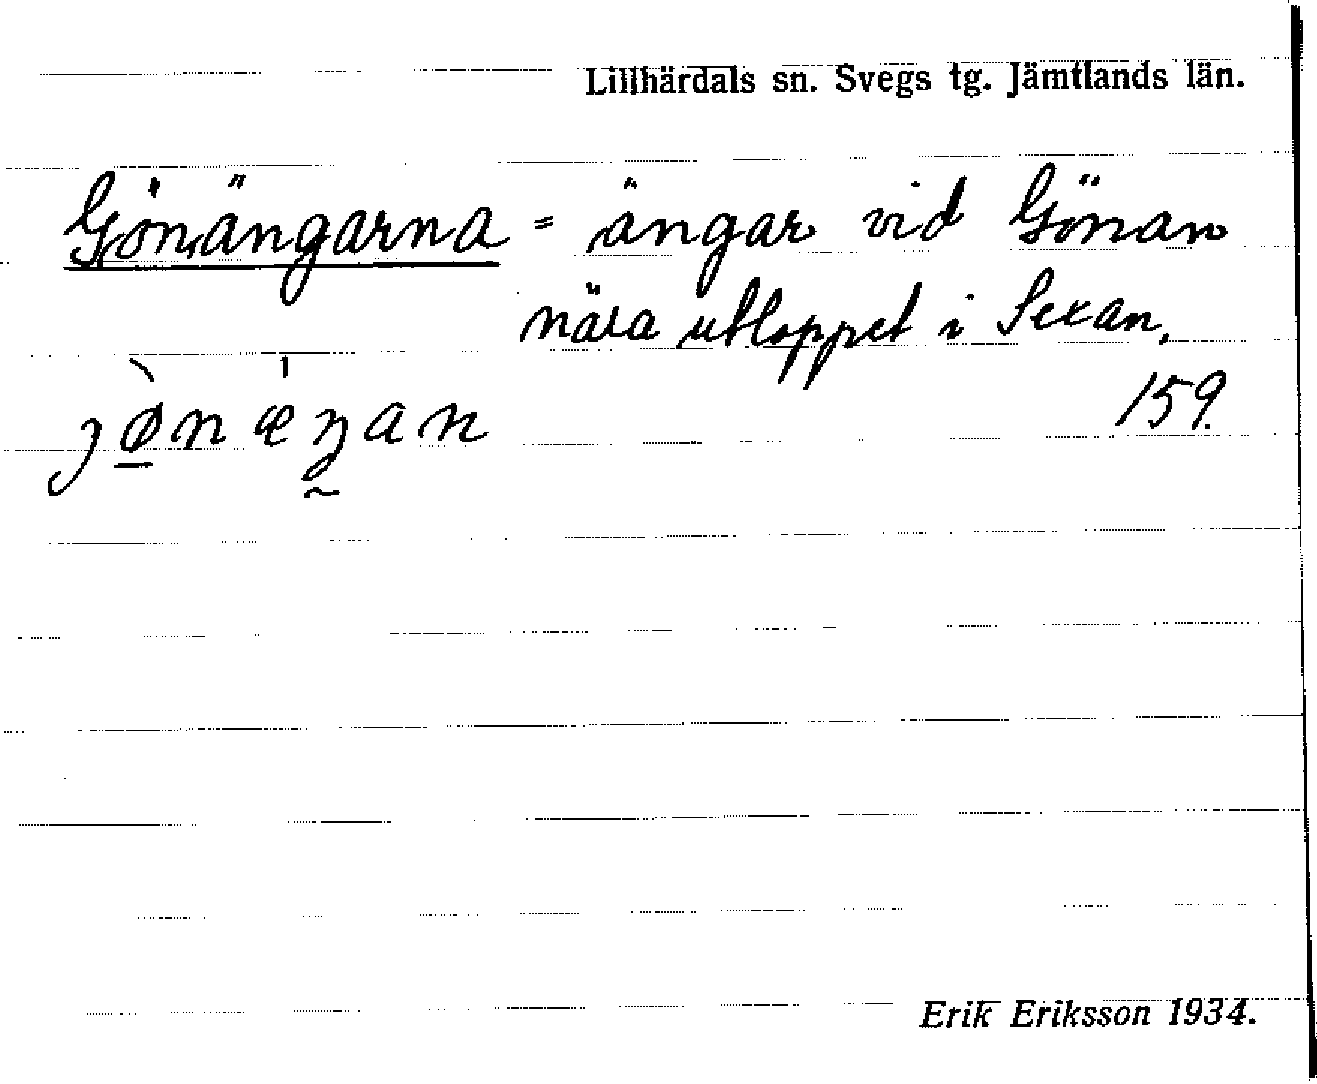 Lillhärdals sn. Svegs tg. Jämtlands län.
Gönängarna = ängar vid Gönan
nära utloppet i Sexan,
159.
jø̱̀næŋan
Erik Eriksson 1934.